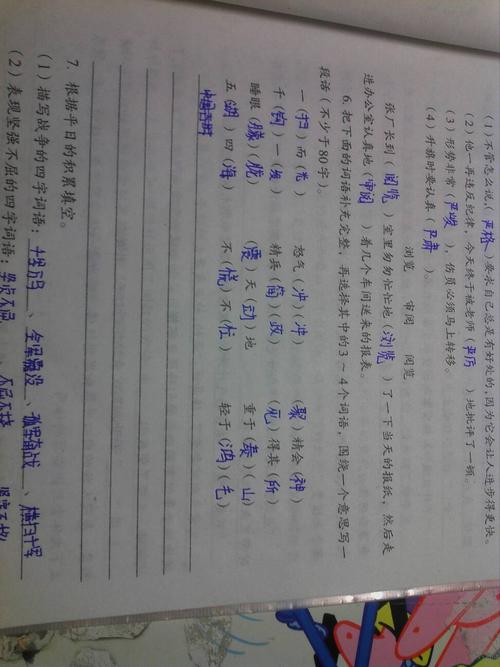 (1)不管怎么说,(严格)要求自己总是有好处的,因为它会让人进步得更快。
(2)他一再违反纪律,今天终于被老师(严厉)地批评了一顿。
(3)形势非常(严峻),伤员必须马上转移。
(4)升旗时要认真(严肃)。
浏览 审阅 阅览
张厂长到(阅览)室里匆匆忙忙地(浏览)了一下当天的报纸,然后走
进办公室认真地(审阅)着几个车间送来的报表。
6. 把下面的词语补充完整,再选择其中的3~4个词语,围绕一个意思写一
段话(不少于80字)。
一(扫)而(光) 怒气(冲)(冲) (聚)精会(神)
千(钧)一(发) 精兵(简)(政) (见)得其(所)
睡眼(朦)(胧) (震)天(动)地 重于(泰)(山)
五(湖)四(海) 不(慌)不(忙) 轻于(鸿)(毛)
7. 根据平日的积累填空。
(1)描写战争的四字词语:千军万马、全军覆没、孤军奋战、横扫千军
(2)表现坚强不屈的四字词语:坚贞不屈、不屈不挠